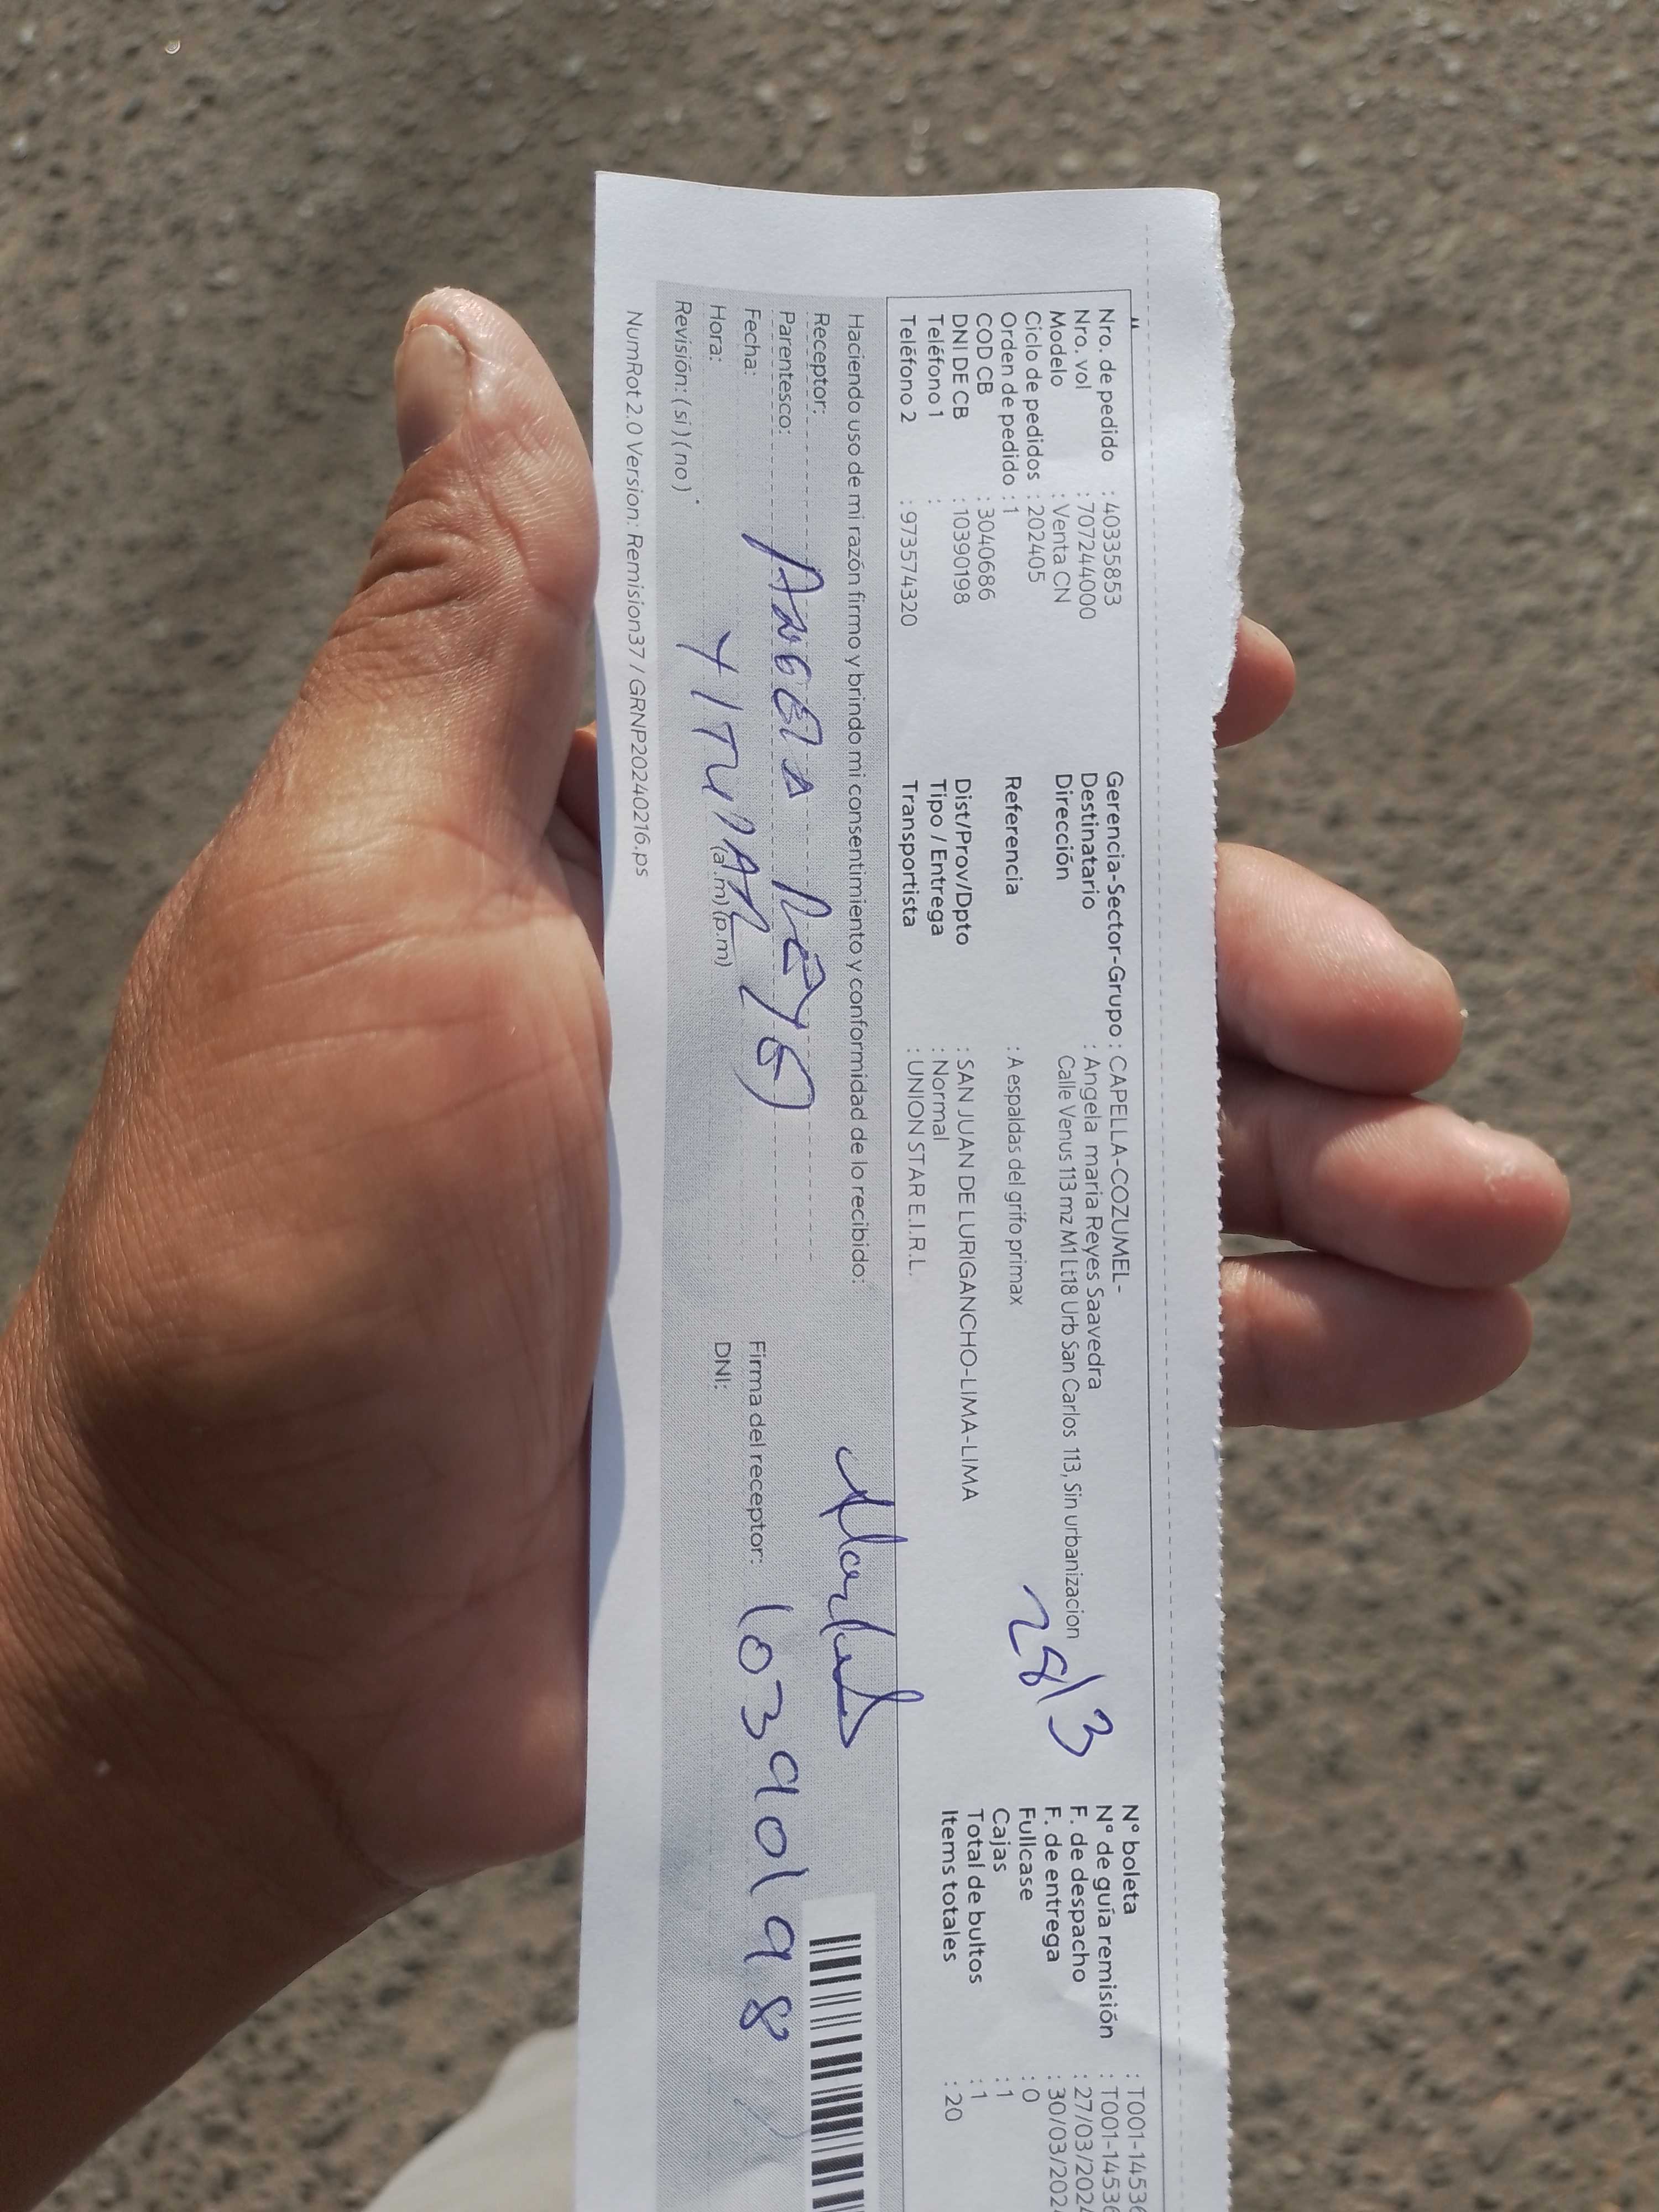 Nro. de pedido : 40335853
Nro. vol : 707244000
Modelo : Venta CN
Ciclo de pedidos : 202405
Orden de pedido : 1
COD CB : 3040686
DNI DE CB : 10390198
Teléfono 1 :
Teléfono 2 : 973574320
Gerencia-Sector-Grupo : CAPELLA-COZUMEL-
Destinatario : Angela maria Reyes Saavedra
Dirección Calle Venus 113 mz M1 Lt18 Urb San Carlos 113, Sin urbanizacion
Referencia : A espaldas del grifo primax
Dist/Prov/Dpto : SAN JUAN DE LURIGANCHO-LIMA-LIMA
Tipo / Entrega : Normal
Transportista : UNION STAR E.I.R.L.
28/3
N° boleta : T001-14536
N° de guía remisión : T001-14536
F. de despacho : 27/03/2024
F. de entrega : 30/03/202
Fullcase : 0
Cajas : 1
Total de bultos : 1
Items totales : 20
Haciendo uso de mi razón firmo y brindo mi consentimiento y conformidad de lo recibido:
Receptor:
Parentesco: Angela Reyes
Fecha:
Hora: TITULAR (a.m) (p.m)
Revisión: ( si ) ( no )
Firma del receptor: 10390198
DNI:
NumRot 2.0 Version: Remision37 / GRNP20240216.ps